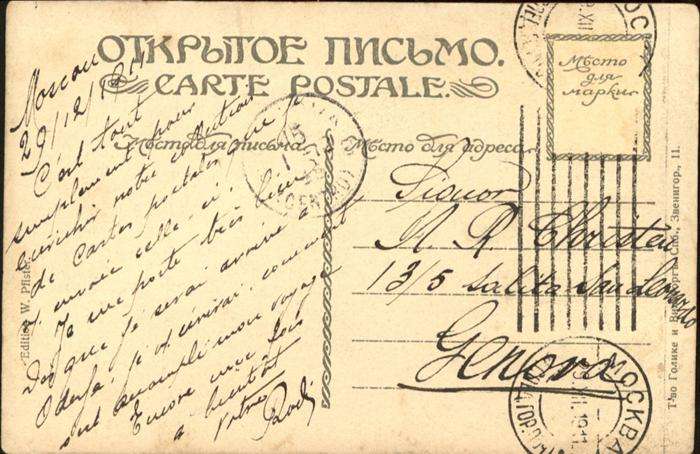 ОТКРЫТОЕ ПИСЬМО.
CARTE POSTALE.
Мѣсто для марки
Мѣсто для письма
Мѣсто для адреса
Moscou
29/12/1911
C'est tout
simplement pour
enrichir votre collection
de cartes postales que je
envoie celle-ci.
Je me porte très bien
Dès que je serai arrivé à
Odessa je écrirai comment
s'est accompli mon voyage
Encore une fois
à bientôt
votre
Rodi
Signor
13/5 Salita San
Genova
МОСКВА
Edition W. Pfister
Т-во Голике и Вильборгъ. Спб., Звенигор., 11.